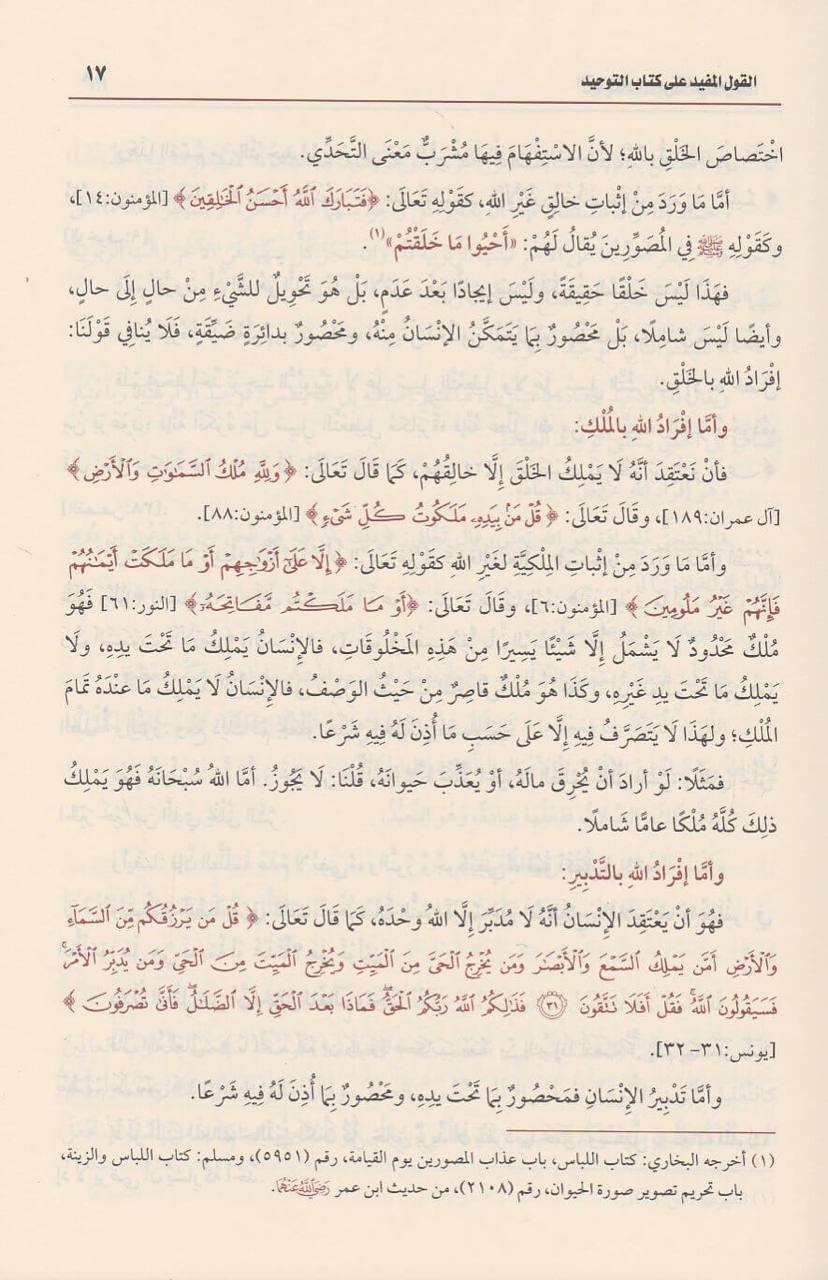 القول المفيد على كتاب التوحيد ١٧
اخْتَصاصَ الخَلْقِ باللهِ؛ لأنَّ الاسْتِفْهَامَ فِيهَا مُشْرَبٌ مَعْنَى التَّحَدِّي.
أمَّا مَا وَرَدَ مِنْ إثْباتِ خالِقٍ غَيْرِ اللهِ، كقَوْلِهِ تَعَالَى: ﴿فَتَبَارَكَ ٱللَّهُ أَحْسَنُ ٱلْخَٰلِقِينَ﴾ [المؤمنون:١٤]،
وكَقَوْلِهِ ﷺ فِي المُصَوِّرِينَ يُقالُ لَهُمْ: «أَحْيُوا مَا خَلَقْتُمْ»(١).
فهَذَا لَيْسَ خَلْقًا حَقِيقَةً، ولَيْسَ إيجادًا بَعْدَ عَدَمٍ، بَلْ هُوَ تَحْوِيلٌ للشَّيْءِ مِنْ حالٍ إلَى حالٍ،
وأيضًا لَيْسَ شامِلًا، بَلْ مَحْصُورٌ بِمَا يَتَمَكَّنُ الإنْسَانُ مِنْهُ، ومَحْصُورٌ بدائِرَةٍ ضَيِّقَةٍ، فَلَا يُنافِي قَوْلَنَا:
إفْرَادُ اللهِ بالخَلْقِ.
وأمَّا إفْرَادُ اللهِ بالمُلْكِ:
فأنْ نَعْتَقِدَ أنَّهُ لَا يَمْلِكُ الخَلْقَ إلَّا خالِقُهُمْ، كَمَا قَالَ تَعَالَى: ﴿وَلِلَّهِ مُلْكُ ٱلسَّمَٰوَٰتِ وَٱلْأَرْضِ﴾
[آل عمران:١٨٩]، وقَالَ تَعَالَى: ﴿قُلْ مَنۢ بِيَدِهِۦ مَلَكُوتُ كُلِّ شَىْءٍ﴾ [المؤمنون:٨٨].
وأمَّا مَا وَرَدَ مِنْ إثْباتِ المِلْكِيَّةِ لغَيْرِ اللهِ كقَوْلِهِ تَعَالَى: ﴿إِلَّا عَلَىٰٓ أَزْوَٰجِهِمْ أَوْ مَا مَلَكَتْ أَيْمَٰنُهُمْ
فَإِنَّهُمْ غَيْرُ مَلُومِينَ﴾ [المؤمنون:٦]، وقَالَ تَعَالَى: ﴿أَوْ مَا مَلَكْتُم مَّفَاتِحَهُۥٓ﴾ [النور:٦١] فَهُوَ
مُلْكٌ مَحْدُودٌ لَا يَشْمَلُ إلَّا شَيْئًا يَسِيرًا مِنْ هَذِهِ المَخْلُوقَاتِ، فالإنْسَانُ يَمْلِكُ مَا تَحْتَ يدِهِ، ولَا
يَمْلِكُ مَا تَحْتَ يدِ غَيْرِهِ، وكَذَا هُوَ مُلْكٌ قاصِرٌ مِنْ حَيْثُ الوَصْفُ، فالإنْسَانُ لَا يَمْلِكُ مَا عنْدَهُ تَمَامَ
المُلْكِ؛ ولهَذَا لَا يَتَصَرَّفُ فِيهِ إلَّا عَلَى حَسَبِ مَا أُذِنَ لَهُ فِيهِ شَرْعًا.
فمَثَلًا: لَوْ أرادَ أنْ يُحْرِقَ مالَهُ، أوْ يُعَذِّبَ حَيوانَهُ، قُلْنَا: لَا يَجُوزُ. أمَّا اللهُ سُبْحَانَهُ فَهُوَ يَمْلِكُ
ذلِكَ كُلَّهُ مُلْكًا عامًّا شَامِلًا.
وأمَّا إفْرَادُ اللهِ بالتَّدْبِيرِ:
فهُوَ أنْ يَعْتَقِدَ الإنْسَانُ أنَّهُ لَا مُدَبِّرَ إلَّا اللهُ وحْدَهُ، كَمَا قَالَ تَعَالَى: ﴿قُلْ مَن يَرْزُقُكُم مِّنَ ٱلسَّمَآءِ
وَٱلْأَرْضِ أَمَّن يَمْلِكُ ٱلسَّمْعَ وَٱلْأَبْصَٰرَ وَمَن يُخْرِجُ ٱلْحَىَّ مِنَ ٱلْمَيِّتِ وَيُخْرِجُ ٱلْمَيِّتَ مِنَ ٱلْحَىِّ وَمَن يُدَبِّرُ ٱلْأَمْرَ ۚ
فَسَيَقُولُونَ ٱللَّهُ ۚ فَقُلْ أَفَلَا تَتَّقُونَ ۝٣١ فَذَٰلِكُمُ ٱللَّهُ رَبُّكُمُ ٱلْحَقُّ ۖ فَمَاذَا بَعْدَ ٱلْحَقِّ إِلَّا ٱلضَّلَٰلُ ۖ فَأَنَّىٰ تُصْرَفُونَ﴾
[يونس:٣١-٣٢].
وأمَّا تَدْبِيرُ الإنْسَانِ فمَحْصُورٌ بِمَا تَحْتَ يدِهِ، ومَحْصُورٌ بِمَا أُذِنَ لَهُ فِيهِ شَرْعًا.
(١) أخرجه البخاري: كتاب اللباس، باب عذاب المصورين يوم القيامة، رقم (٥٩٥١)، ومسلم: كتاب اللباس والزينة،
باب تحريم تصوير صورة الحيوان، رقم (٢١٠٨)، من حديث ابن عمر رَضِيَ اللَّهُ عَنْهُمَا.